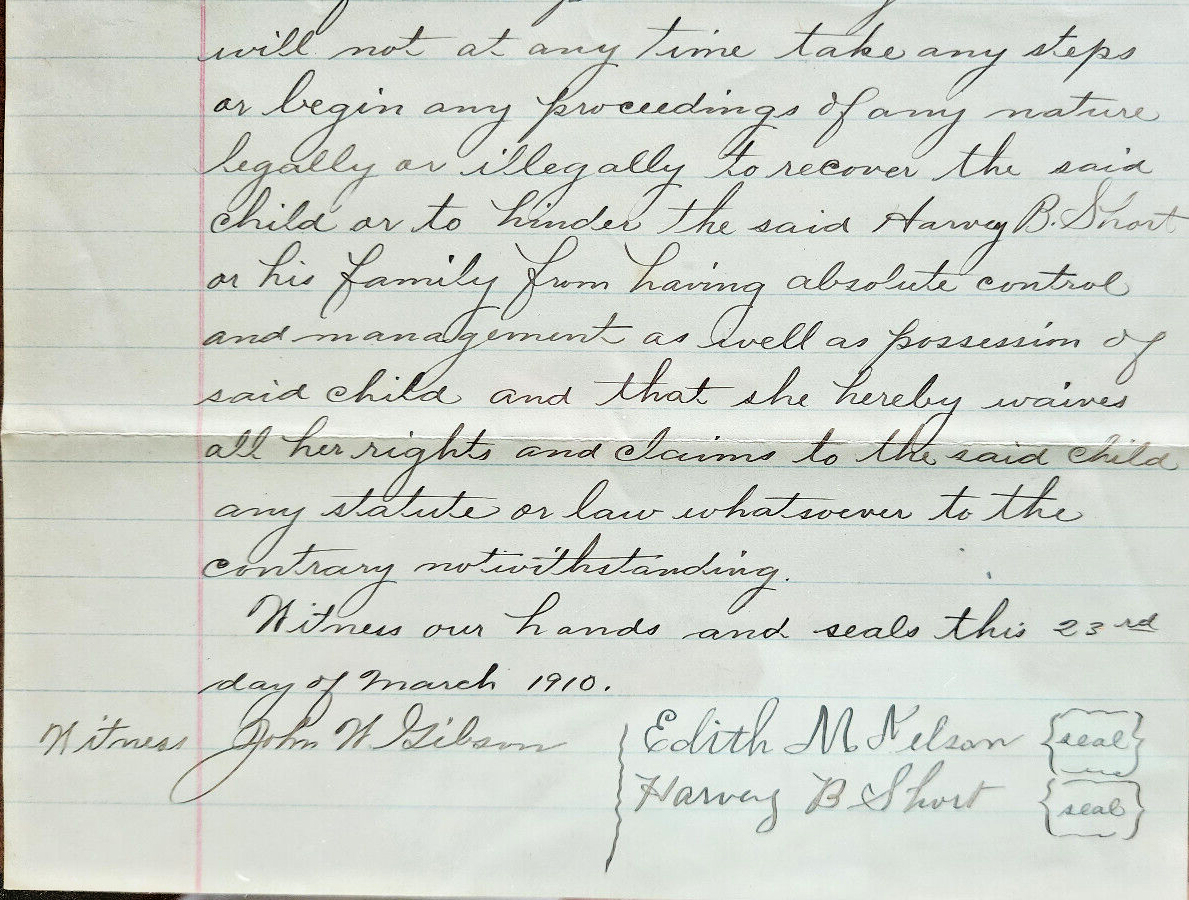 will not at any time take any steps
or begin any proceedings of any nature
legally or illegally to recover the said
child or to hinder the said Harvey B. Short
or his family from having absolute control
and management as well as possession of
said child and that she hereby waives
all her rights and claims to the said child
any statute or law whatsoever to the
contrary notwithstanding.
Witness our hands and seals this 23rd
day of March 1910.
Witness John W Gibson
Edith M Nelson {seal}
Harvey B Short {seal}